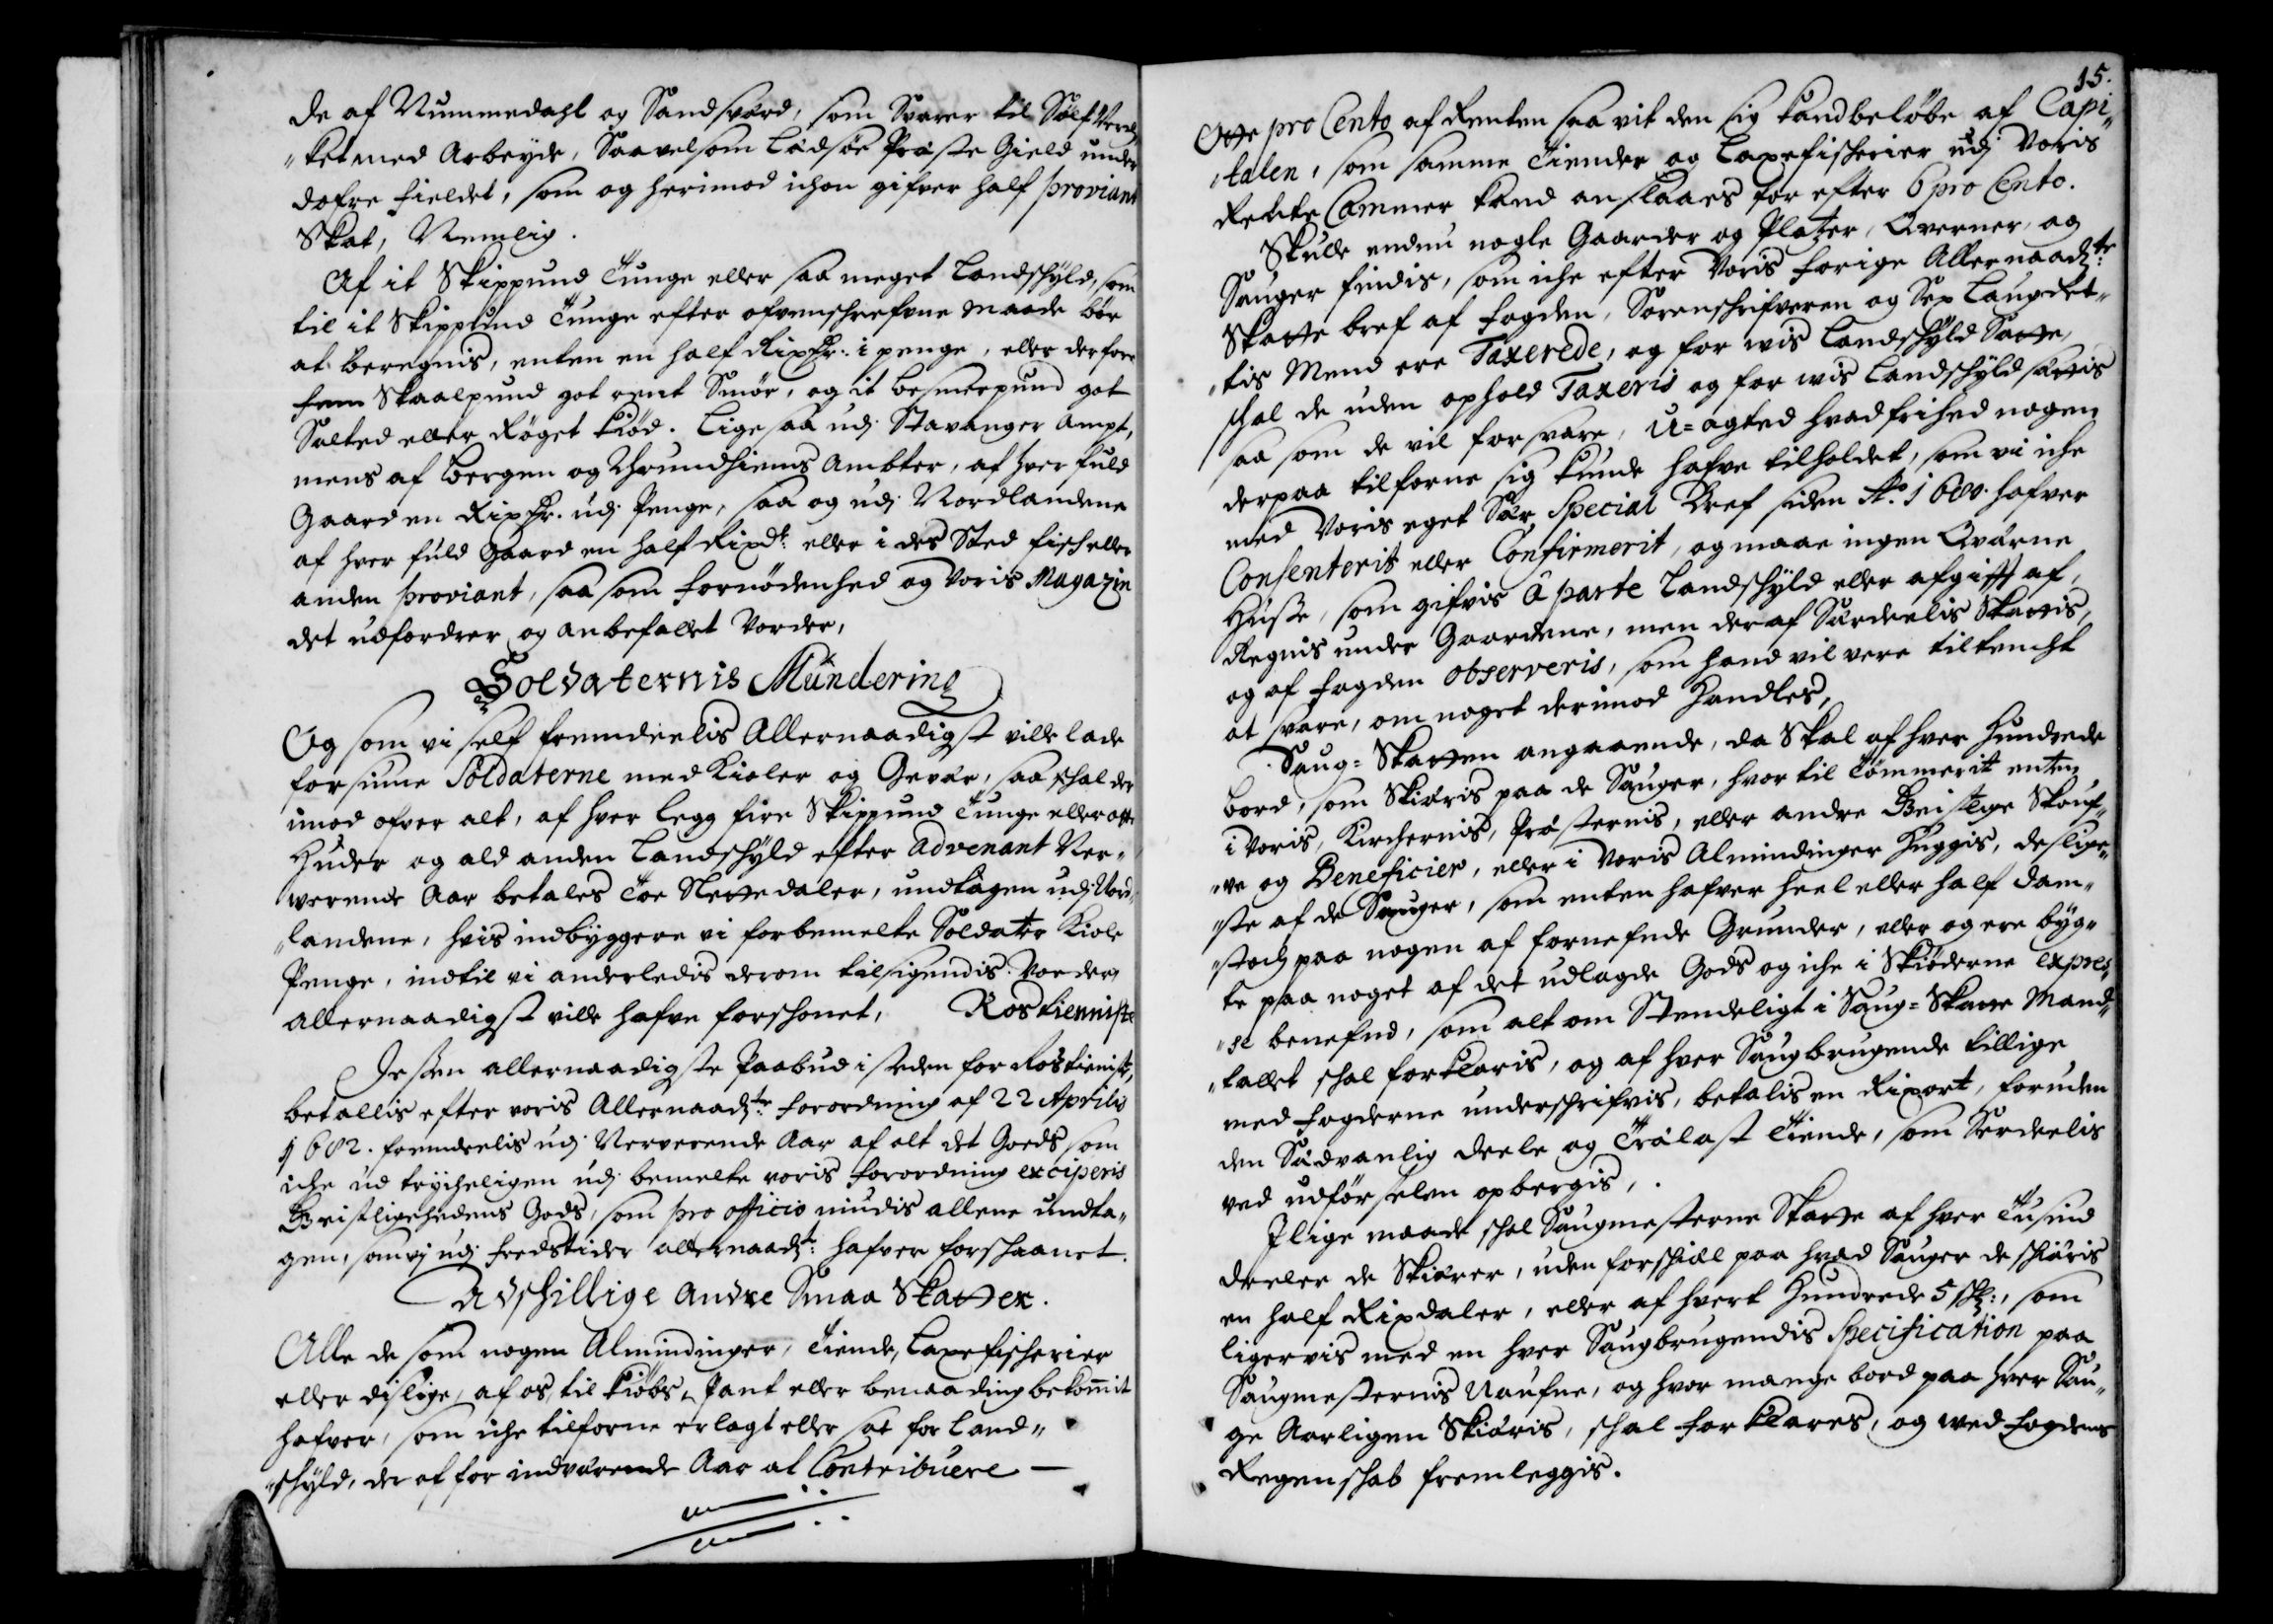 de af Nummedahl og Sandsværd, som Svarer til Sølf Verc„
„ket med Arbeyde, Saavelsom Lædsøe Præste Gield under
dofre fieldet, som og herimod ickon gifver half proviant
Skat, Nemlig.
Af it Skippund Tunge eller saa meget Landschyld, som
til it Skippund Tunge efter ofvenschrefvne Maade bør
at beregnis, enten en half Rixdr: i penge, eller derfore
fem Skaalpund got rent Smør, og it besmerpund got
Salted eller Røget Kiød. Lige saa udj Stavanger Ampt,
mens af Bergen og Thrundhiems Ambter, af hver fuld
Gaard en Rixdr. udj Penge, saa og udj Nordlandene
af hver fuld Gaard en half Rixdr: eller i des Sted fisch eller
anden proviant, saa som fornødenhed og Voris Magazin
det udfordrer og anbefallet Vorder,
Soldaternis Mundering
Og som vi self fremdeelis Allernaadigst ville lade
forsiune Soldaterne med Kioler og Gevær, saa schal der
imod ofver alt, af hver Legg fire Skippund Tunge eller otte
Huder og ald anden Landschyld efter Advenant Ner„
værende Aar betales Toe Slettedaler, undtagen udj Nord„
„landene, hvis indbyggere vi forbemelte Soldater Kiole
Penge, indtil vi anderledis derom tilsigendis Vorder,
allernaadigst ville hafve forschonet, Rostienniste
Jessen allernaadigste Paabud i steden for Rostienist,
betallis efter voris Allernaadste forordning af 22 Aprilis
1682. fremdeelis udj Nerverende Aar af alt det Goeds som
iche udtrycheligen udj bemelte voris forordning exciperis
Geistlighedens Gods, som pro officio niudis allene undta„
gen, som vj udj fredstider allernaadst: hafver forschaanet.
Adschillige andre Smaa Skatter.
Alle de som nogen Almindinger, Tiende, Laxefischerier
eller dislige, af os til Kiøbs, Pant eller benaading bekommit
hafver, som iche tilforne er lagt eller sat for Land„
„schyld, der af for indværende Aar at Contribuere —
15.
Otte pro Cento af Renten saa vit den sig kand beløbe af Capi„
„talen, som samme Tiender og Laxefischerier udj Voris
Rente Cammer kand anslaaes for efter 6 pro Cento.
Skulle endnu nogle Gaarder og Platzer, Qverner, og
Sauger findis, som iche efter Voris forige Allernaadste:
Skatte bref af fogden, Sorenschrifveren og Sex Laugret„
„tis Mend ere Taxerede, og for wis Landschyld Satte,
schal de uden ophold Taxeris og for wis Landschyld sættis
saa som de vil forsvare, U=agted hvad frihed nogen
derpaa tilforne sig kunde hafve tilholdet, som vi iche
med Voris eget Sær Special Bref siden Ao. 1680. hafver
Consenterit eller Confirmerit, og maae ingen Qværne
Huse, som gifvis â parte Landschyld eller afgifft af,
Regnis under Gaardene, men deraf Særdeelis Skattis,
og af fogden observeris, som hand vil vere tiltencht
at svare, om noget derimod Handles,
Saug=Skatten angaaende, da Skal af hver Hundrede
bord, som Skiæris paa de Sauger, hvor til Tømmerit enten
i Voris, Kirchernis, Præsternis, eller andre Geistlige Skouf„
„ve og Beneficier, eller i Voris Almindinger Huggis, deslige„
„ste af de Sauger, som enten hafver heel eller half Dam„
„stoch paa nogen af fornefnde Grunder, eller og ere byg„
te paa noget af det udlagde Gods og iche i Skiøderne expres„
„se benefnd, som alt om Stendeligt i Saug=Skatte Mand„
„tallet schal forklaris, og af hver Saugbrugende tillige
med fogderne underschrifvis, betalis en Rixort, foruden
den Sædvanlig deele og Trælast Tiende, som Serdeelis
ved udførselen opbergis,
J lige maade schal Saugmesterne Skatte af hver Tusind
deeler de Skiærer, uden forschiel paa hvad Sauger de schiæris
en half Rixdaler, eller af hvert Hundrede 5 sk:, som
ligervis med en hver Saugbrugendis Specification paa
Saugmesternis Naufne, og hvor mange bord paa hver Sau„
ge Aarligen Skiæris, schal forklares, og ved fogdens
Regenschab fremleggis.